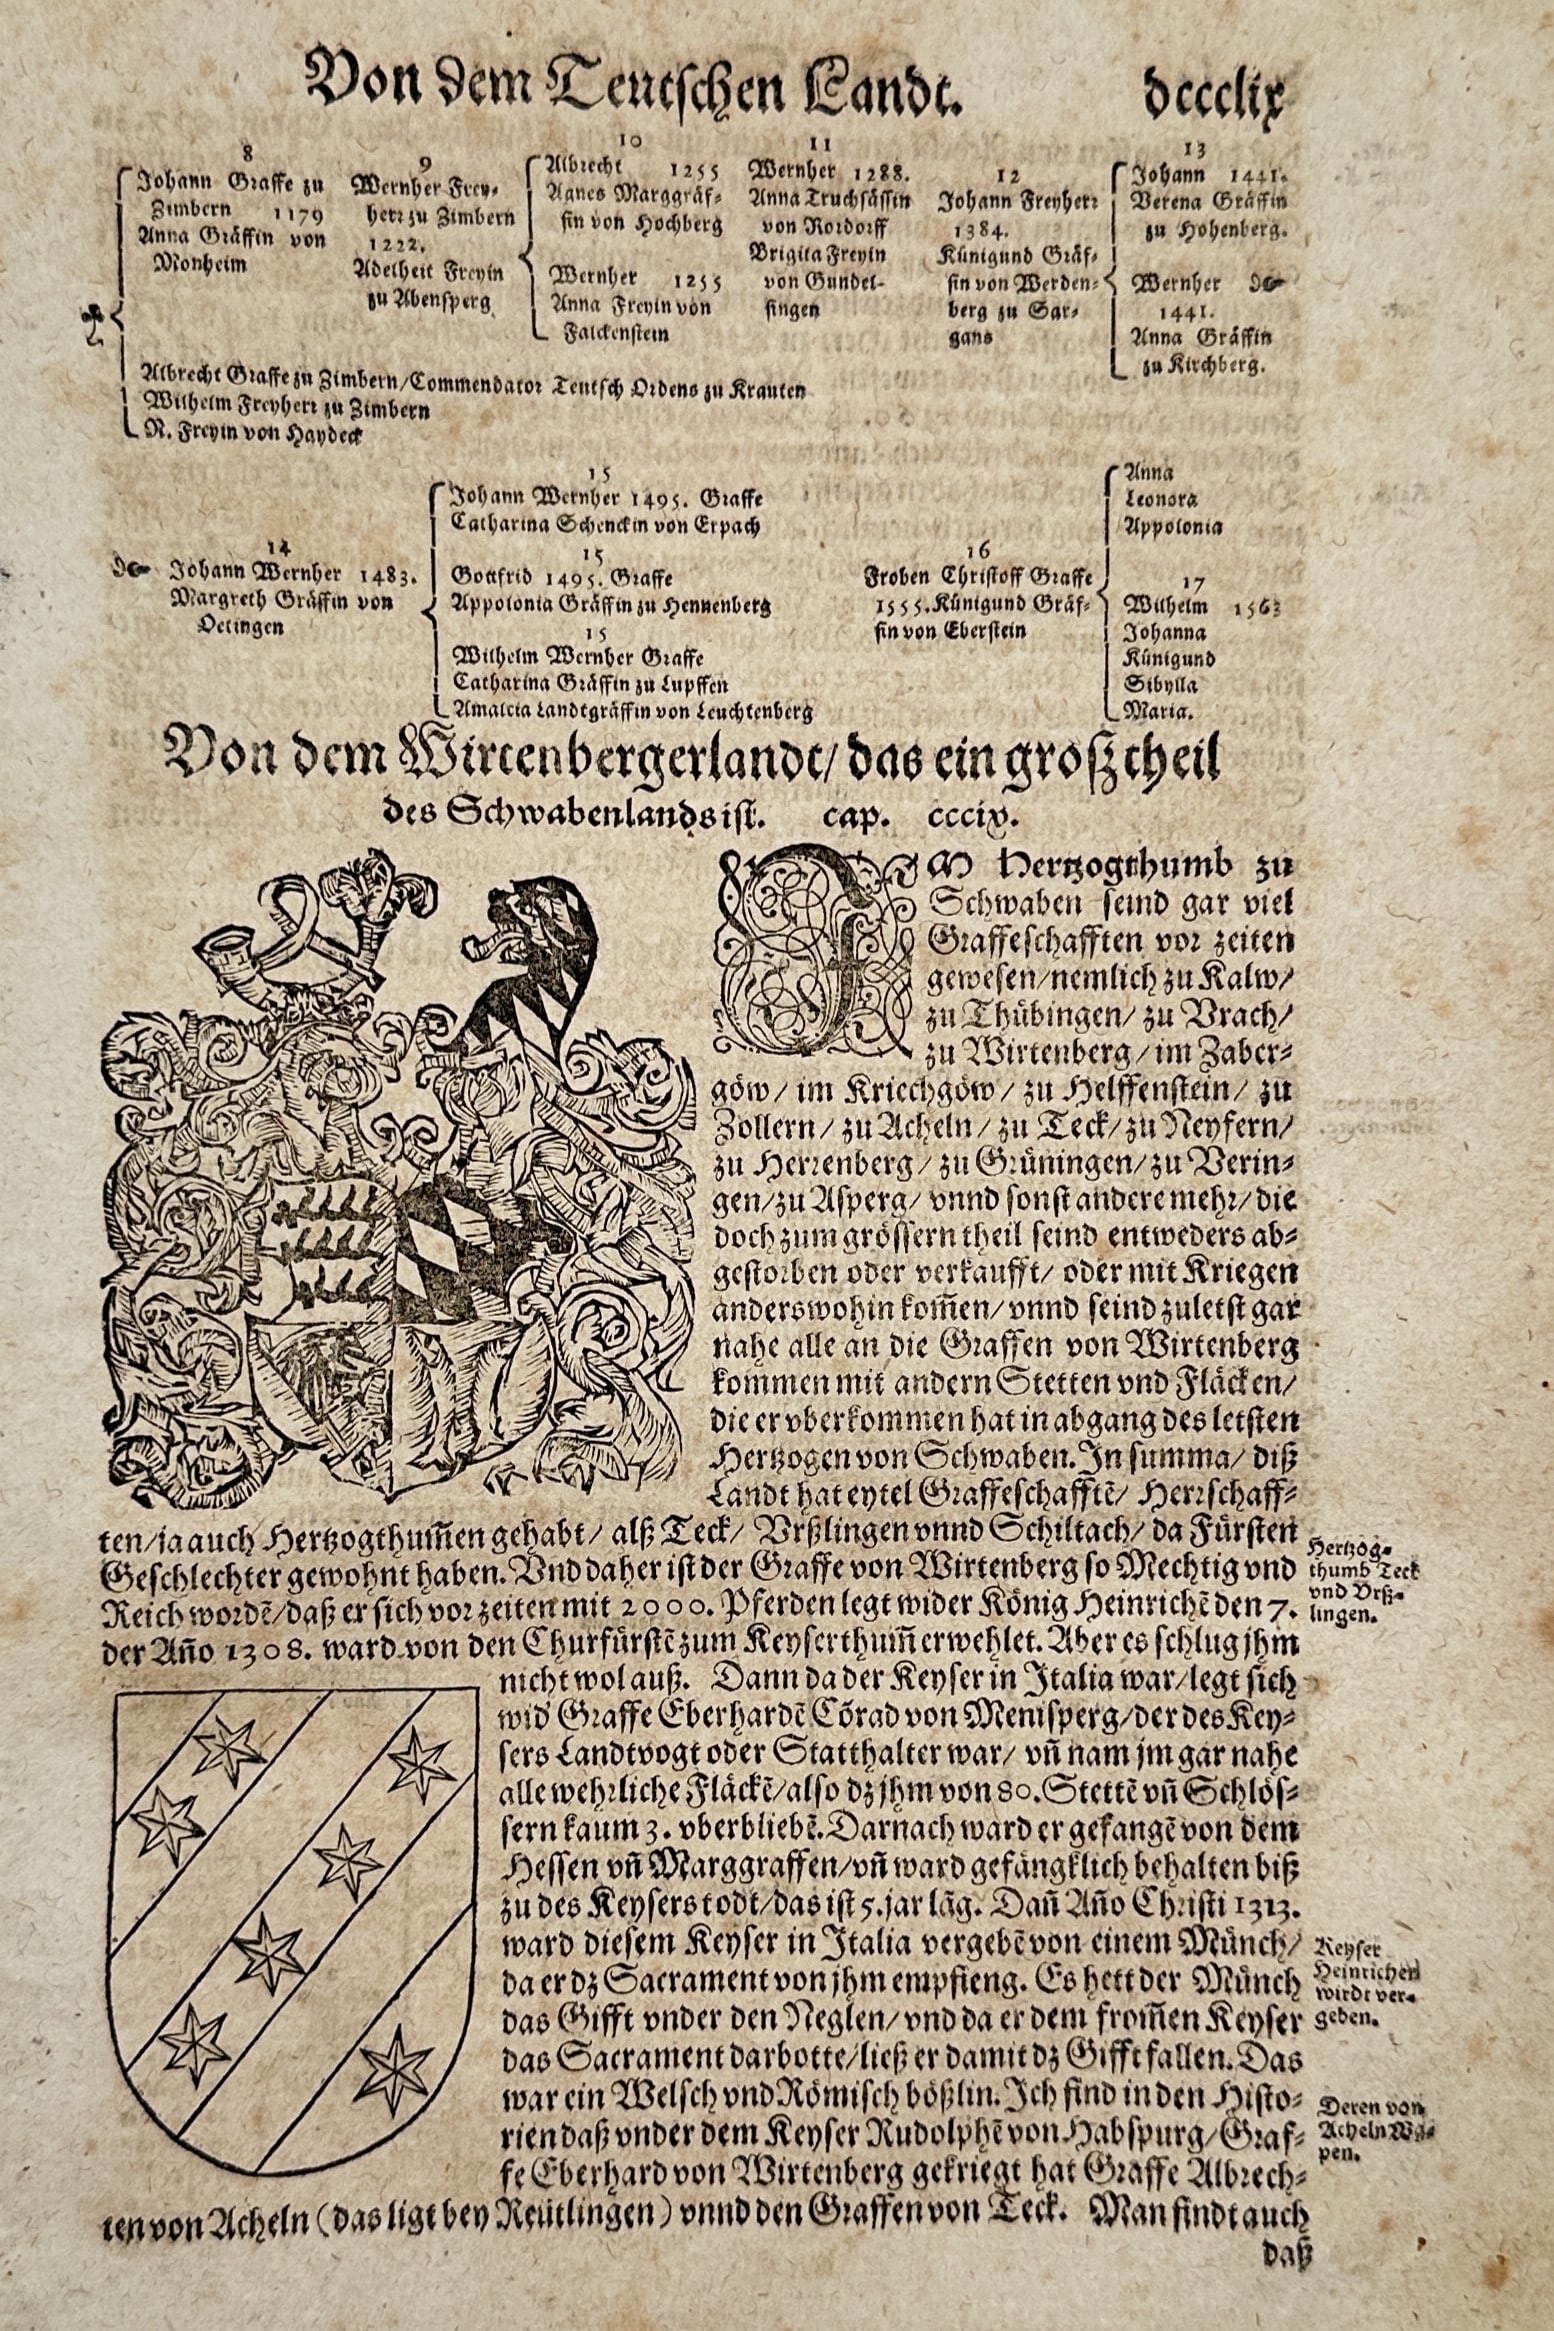 Von dem Teutschen Landt. dccclix
8
Johann Graffe zu
Zimbern 1179
Anna Gräffin von
Monheim
9
Wernher Frey-
herr zu Zimbern
1222.
Adelheit Freyin
zu Abensperg
10
Albrecht 1255
Agnes Marggräf-
fin von Hochberg
Wernher 1255
Anna Freyin von
Falckenstein
11
Wernher 1288.
Anna Truchsässin
von Rordorff
Brigita Freyin
von Gundel-
fingen
12
Johann Freyherr
1384.
Künigund Gräf-
fin von Werden-
berg zu Sar-
gans
13
Johann 1441.
Verena Gräffin
zu Hohenberg.
Wernher
1441.
Anna Gräffin
zu Kirchberg.
Albrecht Graffe zu Zimbern/Commendator Teutsch Ordens zu Krauten
Wilhelm Freyherr zu Zimbern
N. Freyin von Haydeck
14
Johann Wernher 1483.
Margreth Gräffin von
Oetingen
15
Johann Wernher 1495. Graffe
Catharina Schenckin von Erpach
15
Gottfrid 1495. Graffe
Appolonia Gräffin zu Hennenberg
15
Wilhelm Wernher Graffe
Catharina Gräffin zu Lupffen
Amaleia Landtgräffin von Leuchtenberg
16
Froben Christoff Graffe
1555. Künigund Gräf-
fin von Eberstein
Anna
Leonora
Appolonia
17
Wilhelm 1563
Johanna
Künigund
Sibylla
Maria.
Von dem Wirtenbergerlandt/ das ein groß theil
des Schwabenlands ist. cap. cccix.
IM Hertzogthumb zu
Schwaben seind gar viel
Graffeschafften vor zeiten
gewesen/nemlich zu Kalw/
zu Thübingen/ zu Vrach/
zu Wirtenberg/im Zaber-
göw/ im Kriechgöw/ zu Helffenstein/ zu
Zollern/ zu Acheln/ zu Teck/ zu Neyfern/
zu Herrenberg/ zu Grüningen/ zu Verin-
gen/zu Asperg/ vnnd sonst andere mehr/ die
doch zum grössern theil seind entweders ab-
gestorben oder verkaufft/ oder mit Kriegen
anderswohin kom̃en/ vnnd seind zuletst gar
nahe alle an die Graffen von Wirtenberg
kommen mit andern Stetten vnd Fläcken/
die er vberkommen hat in abgang des letsten
Hertzogen von Schwaben. In summa/ diß
Landt hat eytel Graffeschafftẽ/ Herrschaff-
ten/ja auch Hertzogthum̃en gehabt/ alß Teck/ Vrßlingen vnnd Schiltach/ da Fürsten
Hertzog-
thumb Teck
vnd Vrß-
lingen.
Geschlechter gewohnt haben. Vnd daher ist der Graffe von Wirtenberg so Mechtig vnd
Reich wordẽ/daß er sich vor zeiten mit 2000. Pferden legt wider König Heinrichẽ den 7.
der Año 1308. ward von den Churfürstẽ zum Keyserthum̃ erwehlet. Aber es schlug jhm
nicht wol auß. Dann da der Keyser in Italia war/legt sich
wid' Graffe Eberhardẽ Cõrad von Menisperg/der des Key-
sers Landtvogt oder Statthalter war/ vñ nam jm gar nahe
alle wehrliche Fläckẽ/also dz jhm von 80. Stettẽ vñ Schlös-
sern kaum 3. vberbliebẽ. Darnach ward er gefangẽ von dem
Hessen vñ Marggraffen/vñ ward gefängklich behalten biß
zu des Keysers todt/das ist 5. jar lãg. Dañ Año Christi 1313.
ward diesem Keyser in Italia vergebẽ von einem Münch/
Keyser
Heinrichen
wirdt ver-
geben.
da er dz Sacrament von jhm empfieng. Es hett der Münch
das Gifft vnder den Neglen/ vnd da er dem from̃en Keyser
das Sacrament darbotte/ließ er damit dz Gifft fallen. Das
war ein Welsch vnd Römisch bößlin. Ich find in den Histo-
rien daß vnder dem Keyser Rudolphẽ von Habspurg/Graf-
Deren von
Acheln Wa-
pen.
fe Eberhard von Wirtenberg gekriegt hat Graffe Albrech-
ten von Acheln (das ligt bey Reütlingen) vnnd den Graffen von Teck. Man findt auch
daß